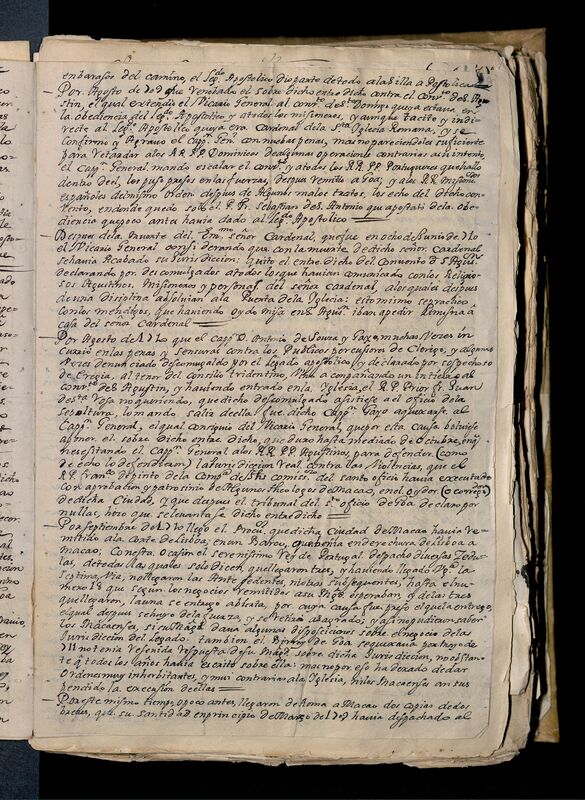 embarasos del camino, el Legdo Apostolico dio parte de todo ala Silla Apostolica
Por Agosto de 1709 que Ventado el sobre dicho entre dicho contra el Convto de S. Agu-
stin, el qual extendio el Vicario General al convto de S. Domingo que ya estava en
la obediencia del Legdo Apostolico y a todos los misioneros, y aunque tacito y indi-
recte al Legdo Apostolico que ya era Cardenal de la Sta Iglesia Romana, y se
Confirmo y Agravo el Capn Genl con nuebas penas, mas no pareciendole suficiente
para retardar a los RR. PP. Dominicos de algunas operaciones contrarias a su intento,
el Capn General mando escalar el convto y a todos los RR. PP. Portugueses que hallo
dentro del, los puso presos en las fuerzas, despues remitio a Goa, y a los RR. Misiones
españoles del mismo Orden despues de Algunos malos tratos, los echo del dicho con-
vento, en donde quedo solo el P. Fr. Sebastian de S. Antonio que apostato de la obe-
diencia que poco antes havia dado al Legdo Apostolico
Despues de la Muerte del Emmo Señor Cardenal, que fue en ocho de Junio de 1710
el Vicario General considerando que con la muerte de dicho señor Cardenal
se havia Acabado su Jurisdiccion; quito el entre dicho del Convento de S. Agusn
declarando por descomulgados a todos los que havian comunicado con los Religio-
sos Agustinos, Misioneros y personas del señor Cardenal, a los quales despues
de una disciplina absolvian a la Puerta de la Iglesia: esto mismo se practico
con los mendigos, que haviendo oydo misa en S. Agusn iban a pedir Limosna a
casa del señor Cardenal
Por Agosto de 1710 que el Capn D. Antonio de Souza y Gayo, muchas Veces in-
curso en las penas y censuras contra los Publicos percusores de Clerigos, y algunas
Veces denunciado descomulgado por el Legado Apostolico, y declarado por sospechoso
de Eregia, al tenor del concilio tridentino, Vino acompañando un entierro al
convto de S. Agustin, y haviendo entrado en la Iglesia, el R. P. Prior fr. Juan
de Sta Rosa no queriendo, que dicho descomulgado asistiese al oficio de la
sepoltura, lo mando salir de ella. fue dicho Capn Gayo a quexarse al
Capn General, el qual consiguio del Vicario General, que por esta causa bolviese
a poner el sobre dicho entre dicho, que duro hasta mediado de Octubre, en que
necesitando el Capn General a los RR. PP. Agustinos, para defender (como
de echo lo defendieron) la Jurisdiccion Real contra las Violencias, que el
R. P. Franco de pinto de la Compa de Jhs comiso del santo oficio havia executado
con aprobacion y patrosinio de Algunos theologos de Macao, en el Oydor (o corregor)
de dicha Ciudad, y que despues el tribunal del So oficio de Goa declaro por
nullas, hizo que se levantase dicho entre dicho
Por Septiembre de 1710 llego el Procudor que dicha Ciudad de Macao havia re-
mitido a la Corte de Lisboa, en un Barco, que venia en derechura de Lisboa a
macao; Con esta ocasion el serenisimo Rey de Portugal despacho diversas Zedu-
las, de todas las quales solo dicen, que llegaron tres, y haviendo llegado la
septima Via, no llegaron las Antecedentes, ni otras subsequentes, hasta el nu-
mero 13 que segun los negocios remitidos a su Magd esperaban, y de las tres
que llegaron, la una se entrego abierta, por cuya causa fue preso el que la entrego,
el qual despues se huyo de la fuerza, y se retiro a sagrado; y asi no pudieron saber
los Macaenses, si su Magd dava algunas disposiciones sobre el negocio de la
Jurisdiccion del Legado. tambien el Birrey de Goa se quexava por mayo de
1711 no tenia Recevida respuesta de su Magd sobre dicha Jurisdiccion, no obstan-
te q todos los años havia escrito sobre ella: mas no por eso ha dexado de dar
Ordenes muy inhorbitantes, y mui contrarias ala Iglesia, ni los Macaenses an sus
pendido la execusion de ellas
Por este mismo tiempo, o poco antes, llegaron de Roma a Macao dos copias de dos
brebes, que su santidad en principio de Março del 1709 havia despachado al